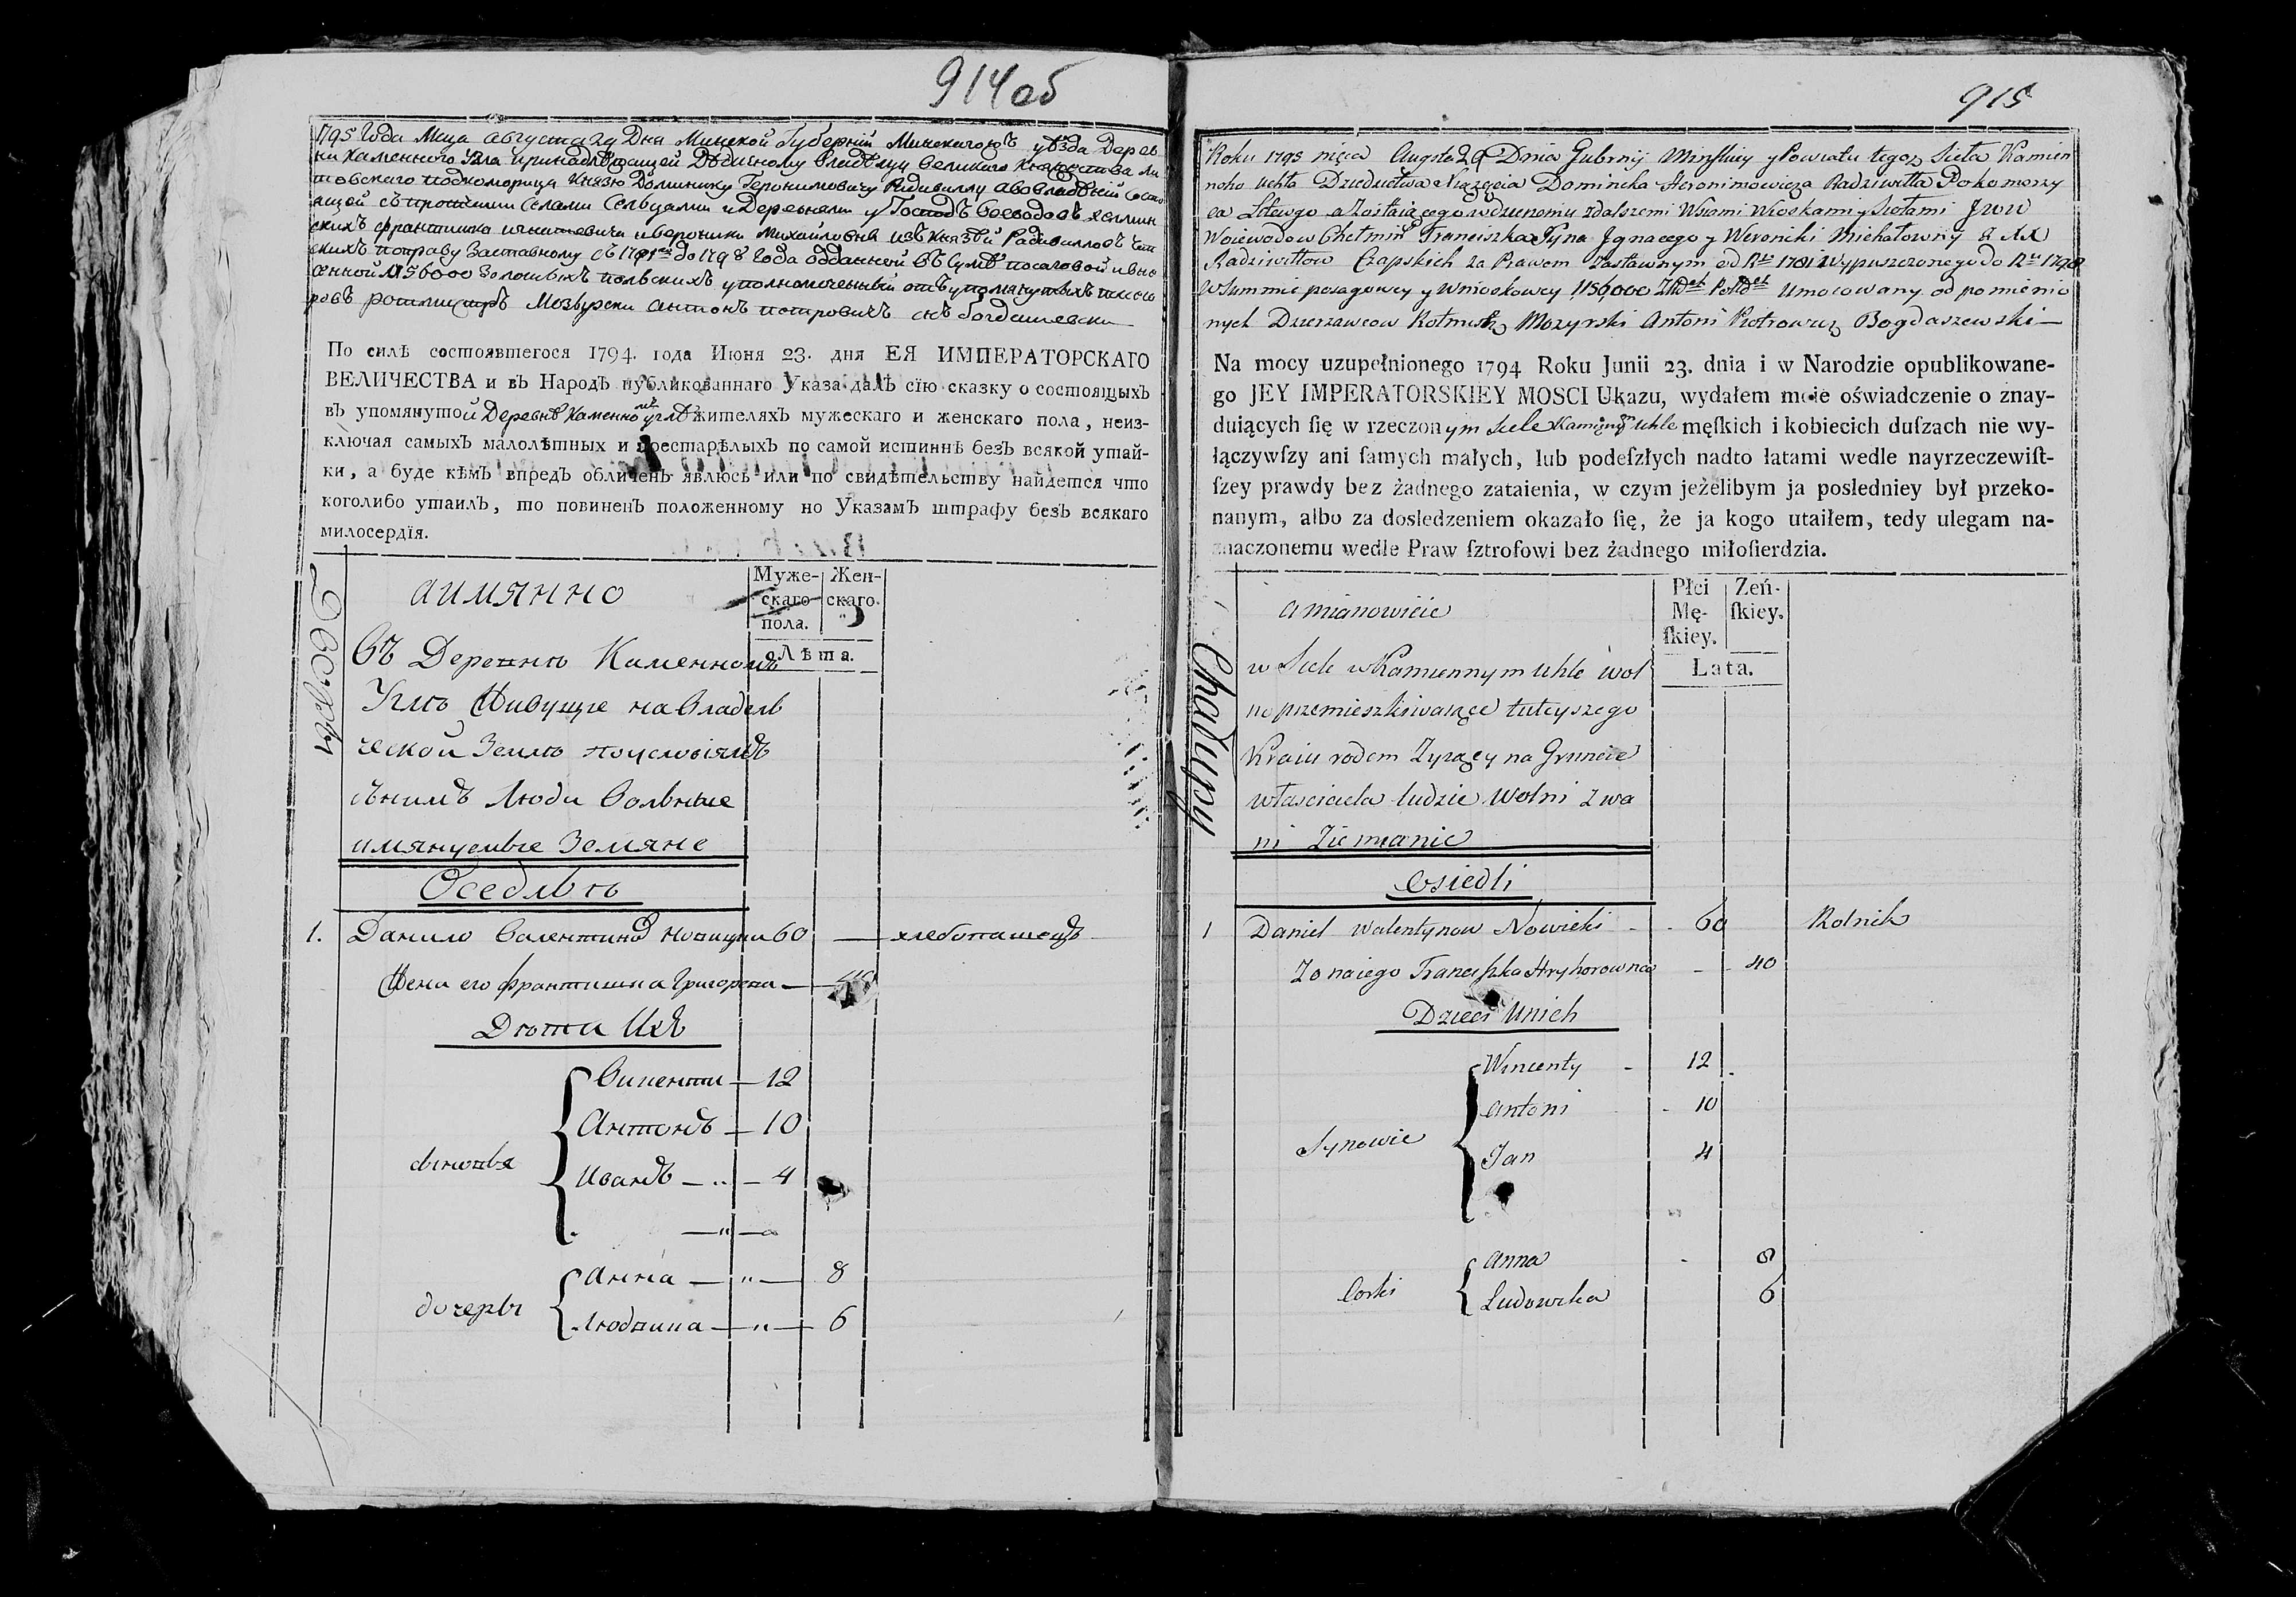 914об
1795 Года Мца Августа 29 Дня Минской Губернии Минскагожъ уѣзда Дерев
ни Каменного Угла принадлежащей Дѣдичному Владѣльцу Великого Княжества Ли
товского подкоморица Князю Доминику Геронимовичу Радивиллу а во владѣнiй состо
ящей съ протчими Селами Сельцами и Деревнями у Господъ Воеводовъ хелмин
скихъ Франтишка Игнатевича и Вероники Михайловны изъ Князей Радивилловъ Чап
скихъ по праву Заставному съ 1781 до 1798 Года отданной въ Сумѣ посаговой и вно
156000 Золотыхъ польскихъ уполномоченный отъ упомянутыхъ
ротмистръ Мозырски Антонъ Петровичъ Богдашевски
По силѣ состоявшегося 1794. года Июня 23. дня ЕЯ ИМПЕРАТОРСКАГО
ВЕЛИЧЕСТВА и въ Народъ публикованнаго Указа далъ сїю сказку о состоящыхъ
въ упомянутой Деревнѣ Каменномъ углѣ жителяхъ мужескаго и женскаго пола, неиз-
ключая самыхъ малолѣтныхъ и престарѣлыхъ по самой истиннѣ безъ всякой утай-
ки, а буде кѣмъ впредъ обличенъ явлюсь или по свидѣтельству найдется что
коголибо утаилъ, то повиненъ положенному по Указамъ штрафу безъ всякаго
милосердїя.
Дворы
аимянно
Муже-
скаго
пола.
Жен-
скаго.
Лѣта.
Въ Деревнѣ Каменномъ
Углѣ Живущие на Владель
ческой Землѣ поусловіямъ
снимъ Люди Вольные
имянуемые Земяне
Оседлые
1. Данило Валентиновъ Новицки 60 — хлебопашецъ
Жена его Франтишка Григорева — 40
Дѣти Ихъ
сыновья
Винценти — 12
Антонъ — 10
Иванъ — 4
дочеры
Анна — 8
Людвика — 6
915
Roku 1795 mięca Augusta 29 Dnia Gubrnij Minskiey y Powiatu tegoz Sieła Kamien
noho Uchła Dziedictwa Xiązęcia Dominika Hieronimowicza Radziwiłła Pokomorzy
ca Litewgo a Zostaiącego w dzierzeniu z dalszemi Wsiami Wioskami y Siołami Jww
Woiewodow Chełmin Franciszka Syna Jgnacego y Weroniki Michałowny z XX
Radziwiłłow Czapskich za Prawem Zastawnym od Ru 1781 Wypuszczonego do Ru 1798
W Summie posagowey y Wnioskowey 156,000 Złł Umocowany od pomienio
nych Dzierzawcow Rotmistrz Mozyrski Antoni Piotrowicz Bogdaszewski —
Na mocy uzupełnionego 1794 Roku Junii 23. dnia i w Narodzie opublikowane-
go JEY IMPERATORSKIEY MOSCI Ukazu, wydałem moie oświadczenie o znay-
duiących ſię w rzeczonym Siele Kamiennym Uhle męſkich i kobiecich duſzach nie wy-
łączywſzy ani ſamych małych, lub podeſzłych nadto łatami wedle nayrzeczewiſt-
ſzey prawdy bez żadnego zataienia, w czym jeżelibym ja posledniey był przeko-
nanym, albo za dosledzeniem okazało ſię, że ja kogo utaiłem, tedy ulegam na-
znaczonemu wedle Praw ſztrofowi bez żadnego miłoſierdzia.
Chałupy
amianowicie
Płci
Mę-
ſkiey.
Zeń-
ſkiey.
Lata.
w Siele w Kamiennym Uhle wol
no przemieszkiwaiące tuteyszego
Kraiu rodem Zyiący na Gruncie
własciciela ludzie Wolni zwa
ni Ziemianie
Osiedli
1 Daniel Walentynow Nowicki - 60 Rolnik
Zona iego Franciszka Hryhorowna - 40
Dzieci Unich
Synowie
Wincenty - 12
Antoni - 10
Jan 4
Corki
Anna - 8
Ludowika 6